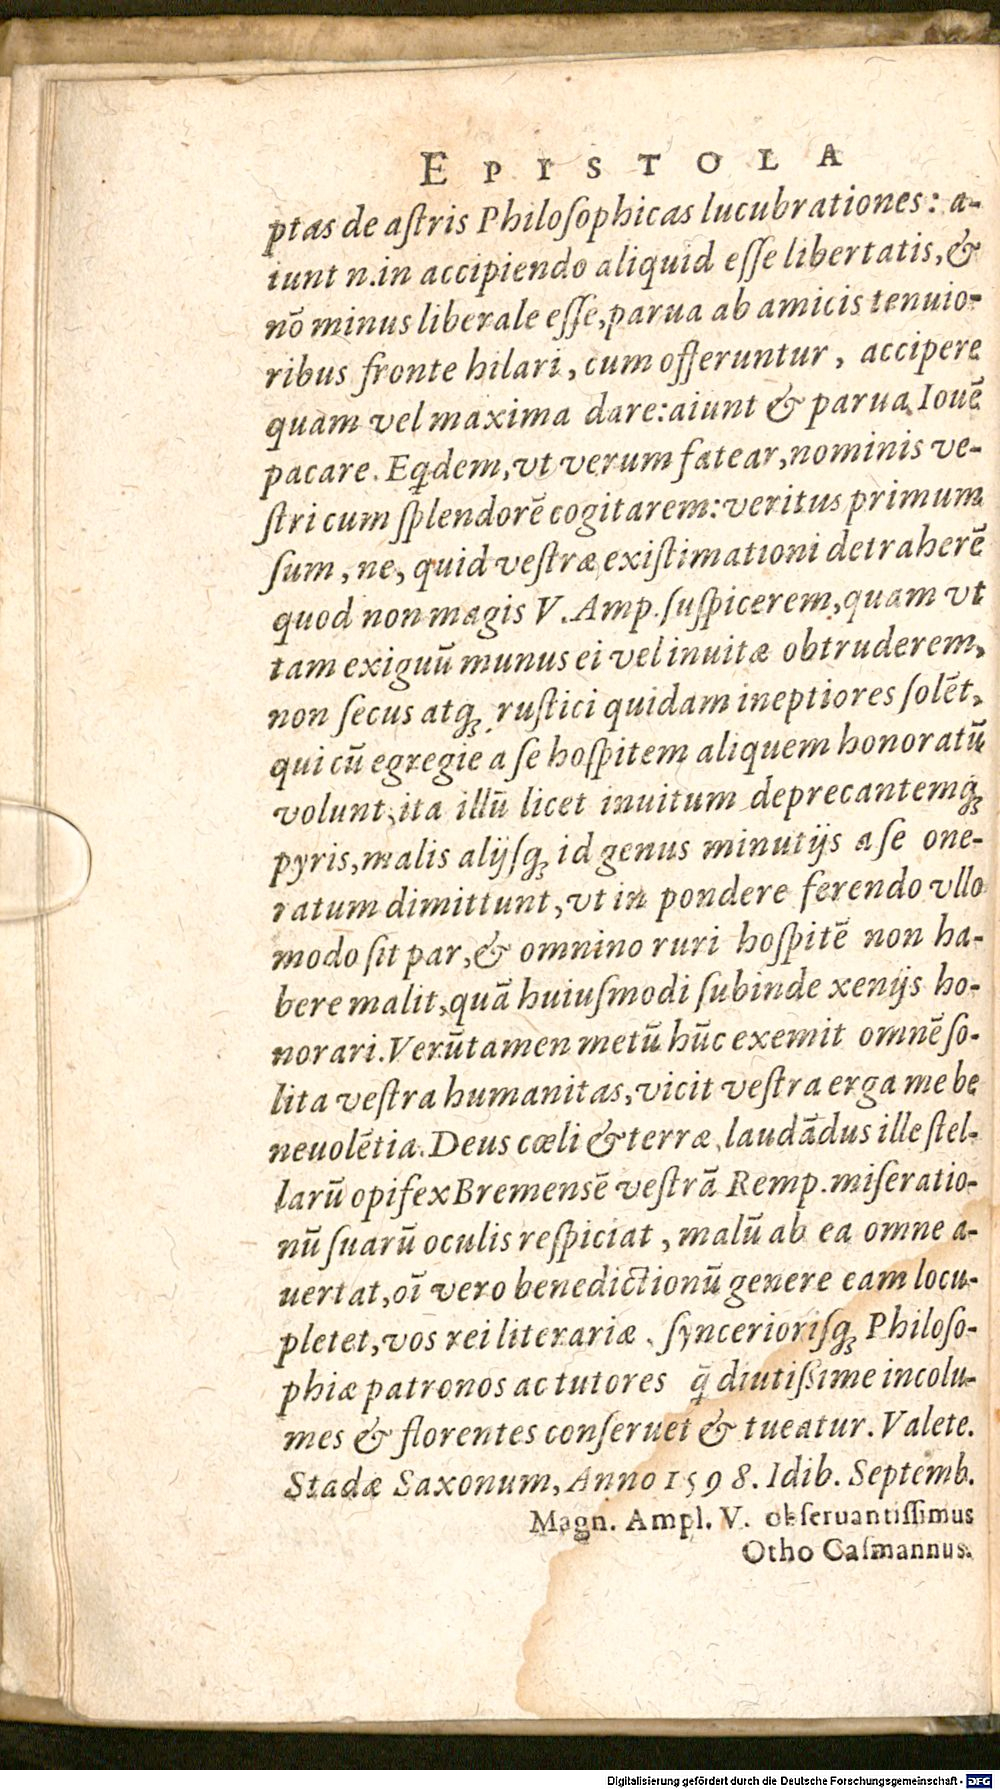 EPISTOLA
ptas de aſtris Philoſophicas lucubrationes: a-
iunt n. in accipiendo aliquid eſſe libertatis, &
nõ minus liberale eſſe, parua ab amicis tenuio-
ribus fronte hilari, cum offeruntur, accipere
quam vel maxima dare: aiunt & parua Iouẽ
pacare. Eq́dem, vt verum fatear, nominis ve-
ſtri cum ſplendorẽ cogitarem: veritus primum
ſum, ne, quid veſtræ exiſtimationi detraherẽ
quod non magis V. Amp. ſuſpicerem, quam vt
tam exiguũ munus ei vel inuitæ obtruderem,
non ſecus atq; ruſtici quidam ineptiores ſolẽt,
qui cũ egregie a ſe hoſpitem aliquem honoratũ
volunt, ita illũ licet inuitum deprecantemq;
pyris, malis alijſq; id genus minutijs a ſe one-
ratum dimittunt, vt in pondere ferendo vllo
modo ſit par, & omnino ruri hoſpitẽ non ha-
bere malit, quã huiuſmodi ſubinde xenijs ho-
norari. Verũtamen metũ hũc exemit omnẽ ſo-
lita veſtra humanitas, vicit veſtra erga me be
neuolẽtia. Deus cæli & terræ, laudãdus ille ſtel-
larũ opifex Bremensẽ veſtrã Remp. miſeratio-
nũ ſuarũ oculis reſpiciat, malũ ab ea omne a-
uertat, oĩ vero benedictionũ genere eam locu-
pletet, vos rei literariæ, ſynceriorisq; Philoſo-
phiæ patronos ac tutores q̃ diutiſſime incolu-
mes & florentes conſeruet & tueatur. Valete.
Stadæ Saxonum, Anno 1598. Idib. Septemb.
Magn. Ampl. V. obſeruantiſſimus
Otho Caſmannus.
Digitalisierung gefördert durch die Deutsche Forschungsgemeinschaft - DFG